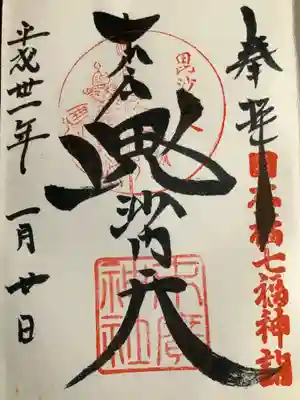 奉拝
日本橋七福神詣
毘沙門天
末廣神社
平成卅一年 一月廿日